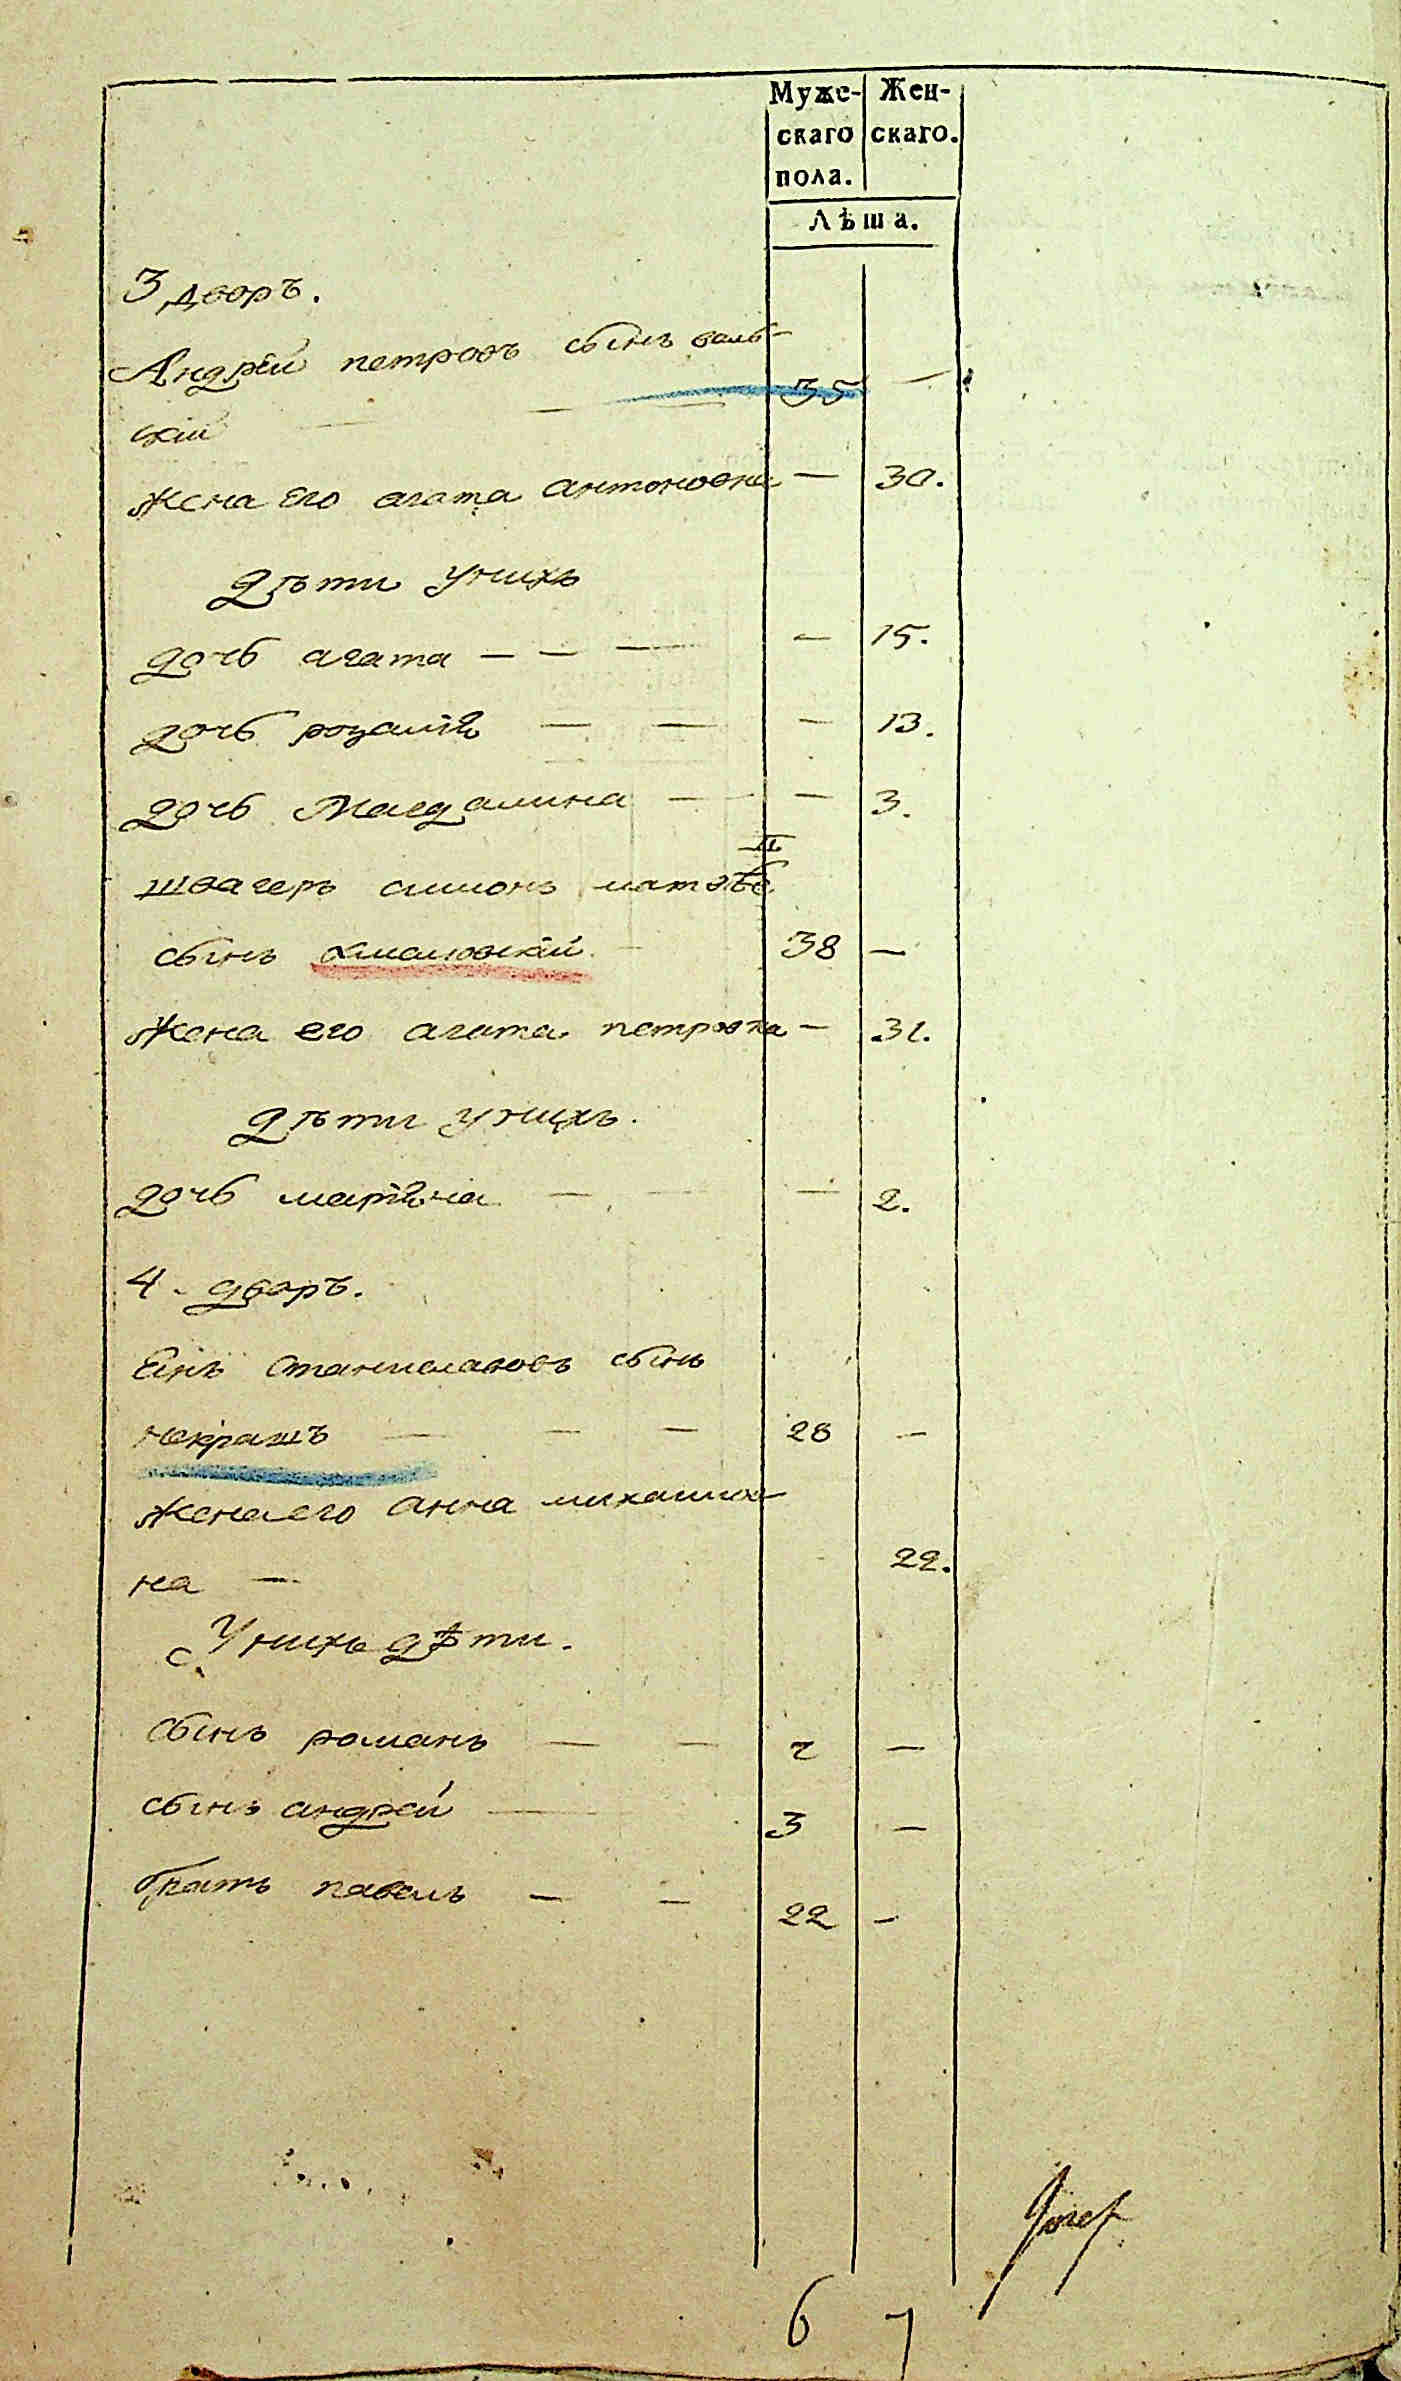 Муже- Жен-
скаго скаго.
пола.
Лѣта.
3 дворъ.
Андрей петровъ сынъ валь-
скій — — 35 —
жена его агата антоновна — 30.
дѣти унихъ
дочь агата — — — — 15.
дочь розалія — — — 13.
дочь Магдалина — — — 3.
швагеръ симонъ матвѣ
сынъ 38 —
жена его агата петровна — 31.
дѣти унихъ.
дочь маріяна — — — 2.
4. дворъ.
Янъ Станиславовъ сынъ
некрашъ — — — 28 —
жена его анна михайлов
на — 22.
Унихъ дѣти.
сынъ романъ — — 7 —
сынъ андрей — 3 —
братъ павелъ — — 22 —
Jozef
6 7